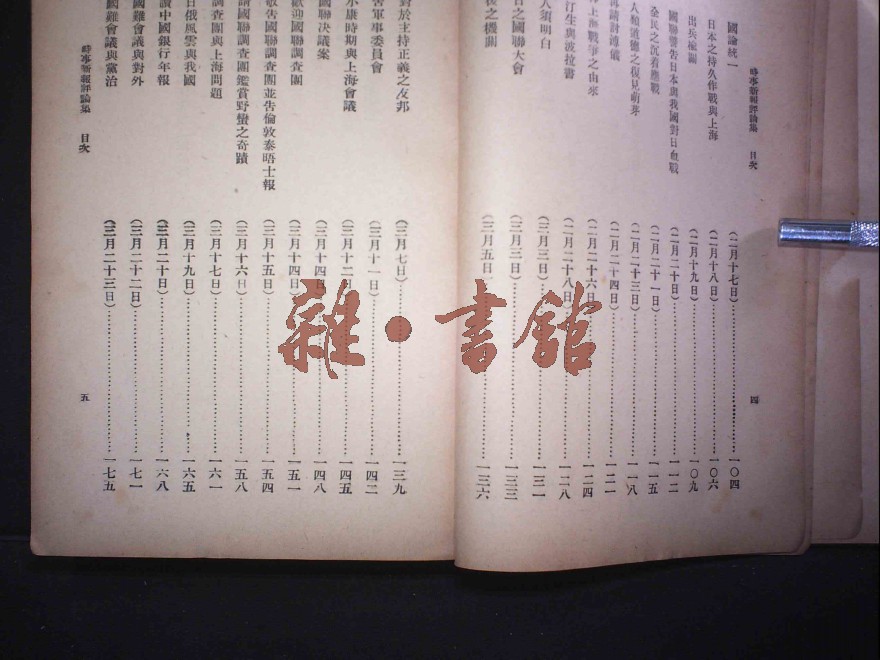 時事新報評論集 目次
國論統一 (二月十七日) 一〇四
日本之持久作戰與上海 (二月十八日) 一〇六
出兵楡關 (二月十九日) 一〇九
國聯警告日本與我國對日血戰 (二月二十日) 一一二
全民之沉着應戰 (二月二十一日) 一一五
人類道德之復見萌芽 (二月二十三日) 一一八
再請討溥儀 (二月二十四日) 一二一
上海戰爭之由來 (二月二十六日) 一二四
汀生與波拉書 (二月二十八日) 一二八
人須明白 (三月三日) 一三一
日之國聯大會 (三月三日) 一三三
後之機關 (三月五日) 一三六
四
對於主持正義之友邦 (三月七日) 一三九
告軍事委員會 (三月十一日) 一四二
小康時期與上海會議 (三月十二日) 一四五
國聯決議案 (三月十四日) 一四八
歡迎國聯調查團 (三月十四日) 一五一
敬告國聯調查團並告倫敦泰晤士報 (三月十五日) 一五四
請國聯調查團鑑賞野蠻之奇蹟 (三月十六日) 一五八
調查團與上海問題 (三月十七日) 一六一
日俄風雲與我國 (三月十九日) 一六五
讀中國銀行年報 (三月二十日) 一六八
國難會議與對外 (三月二十二日) 一七一
國難會議與黨治 (三月二十三日) 一七五
時事新報評論集 目次
五
雜·書館